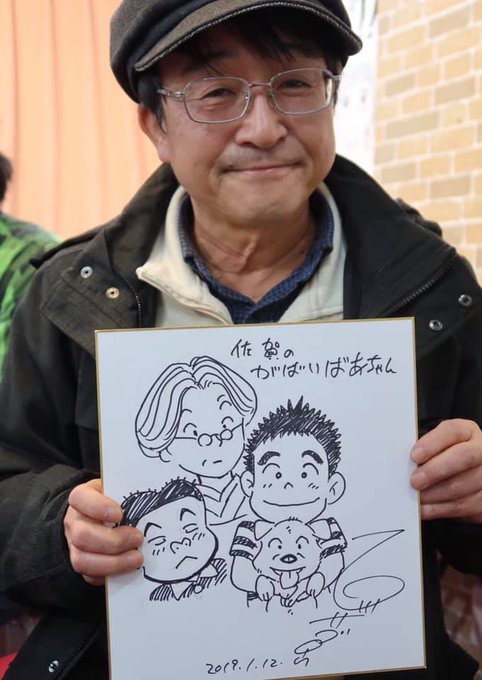 佐賀の
がばいばあちゃん
2019.1.12.